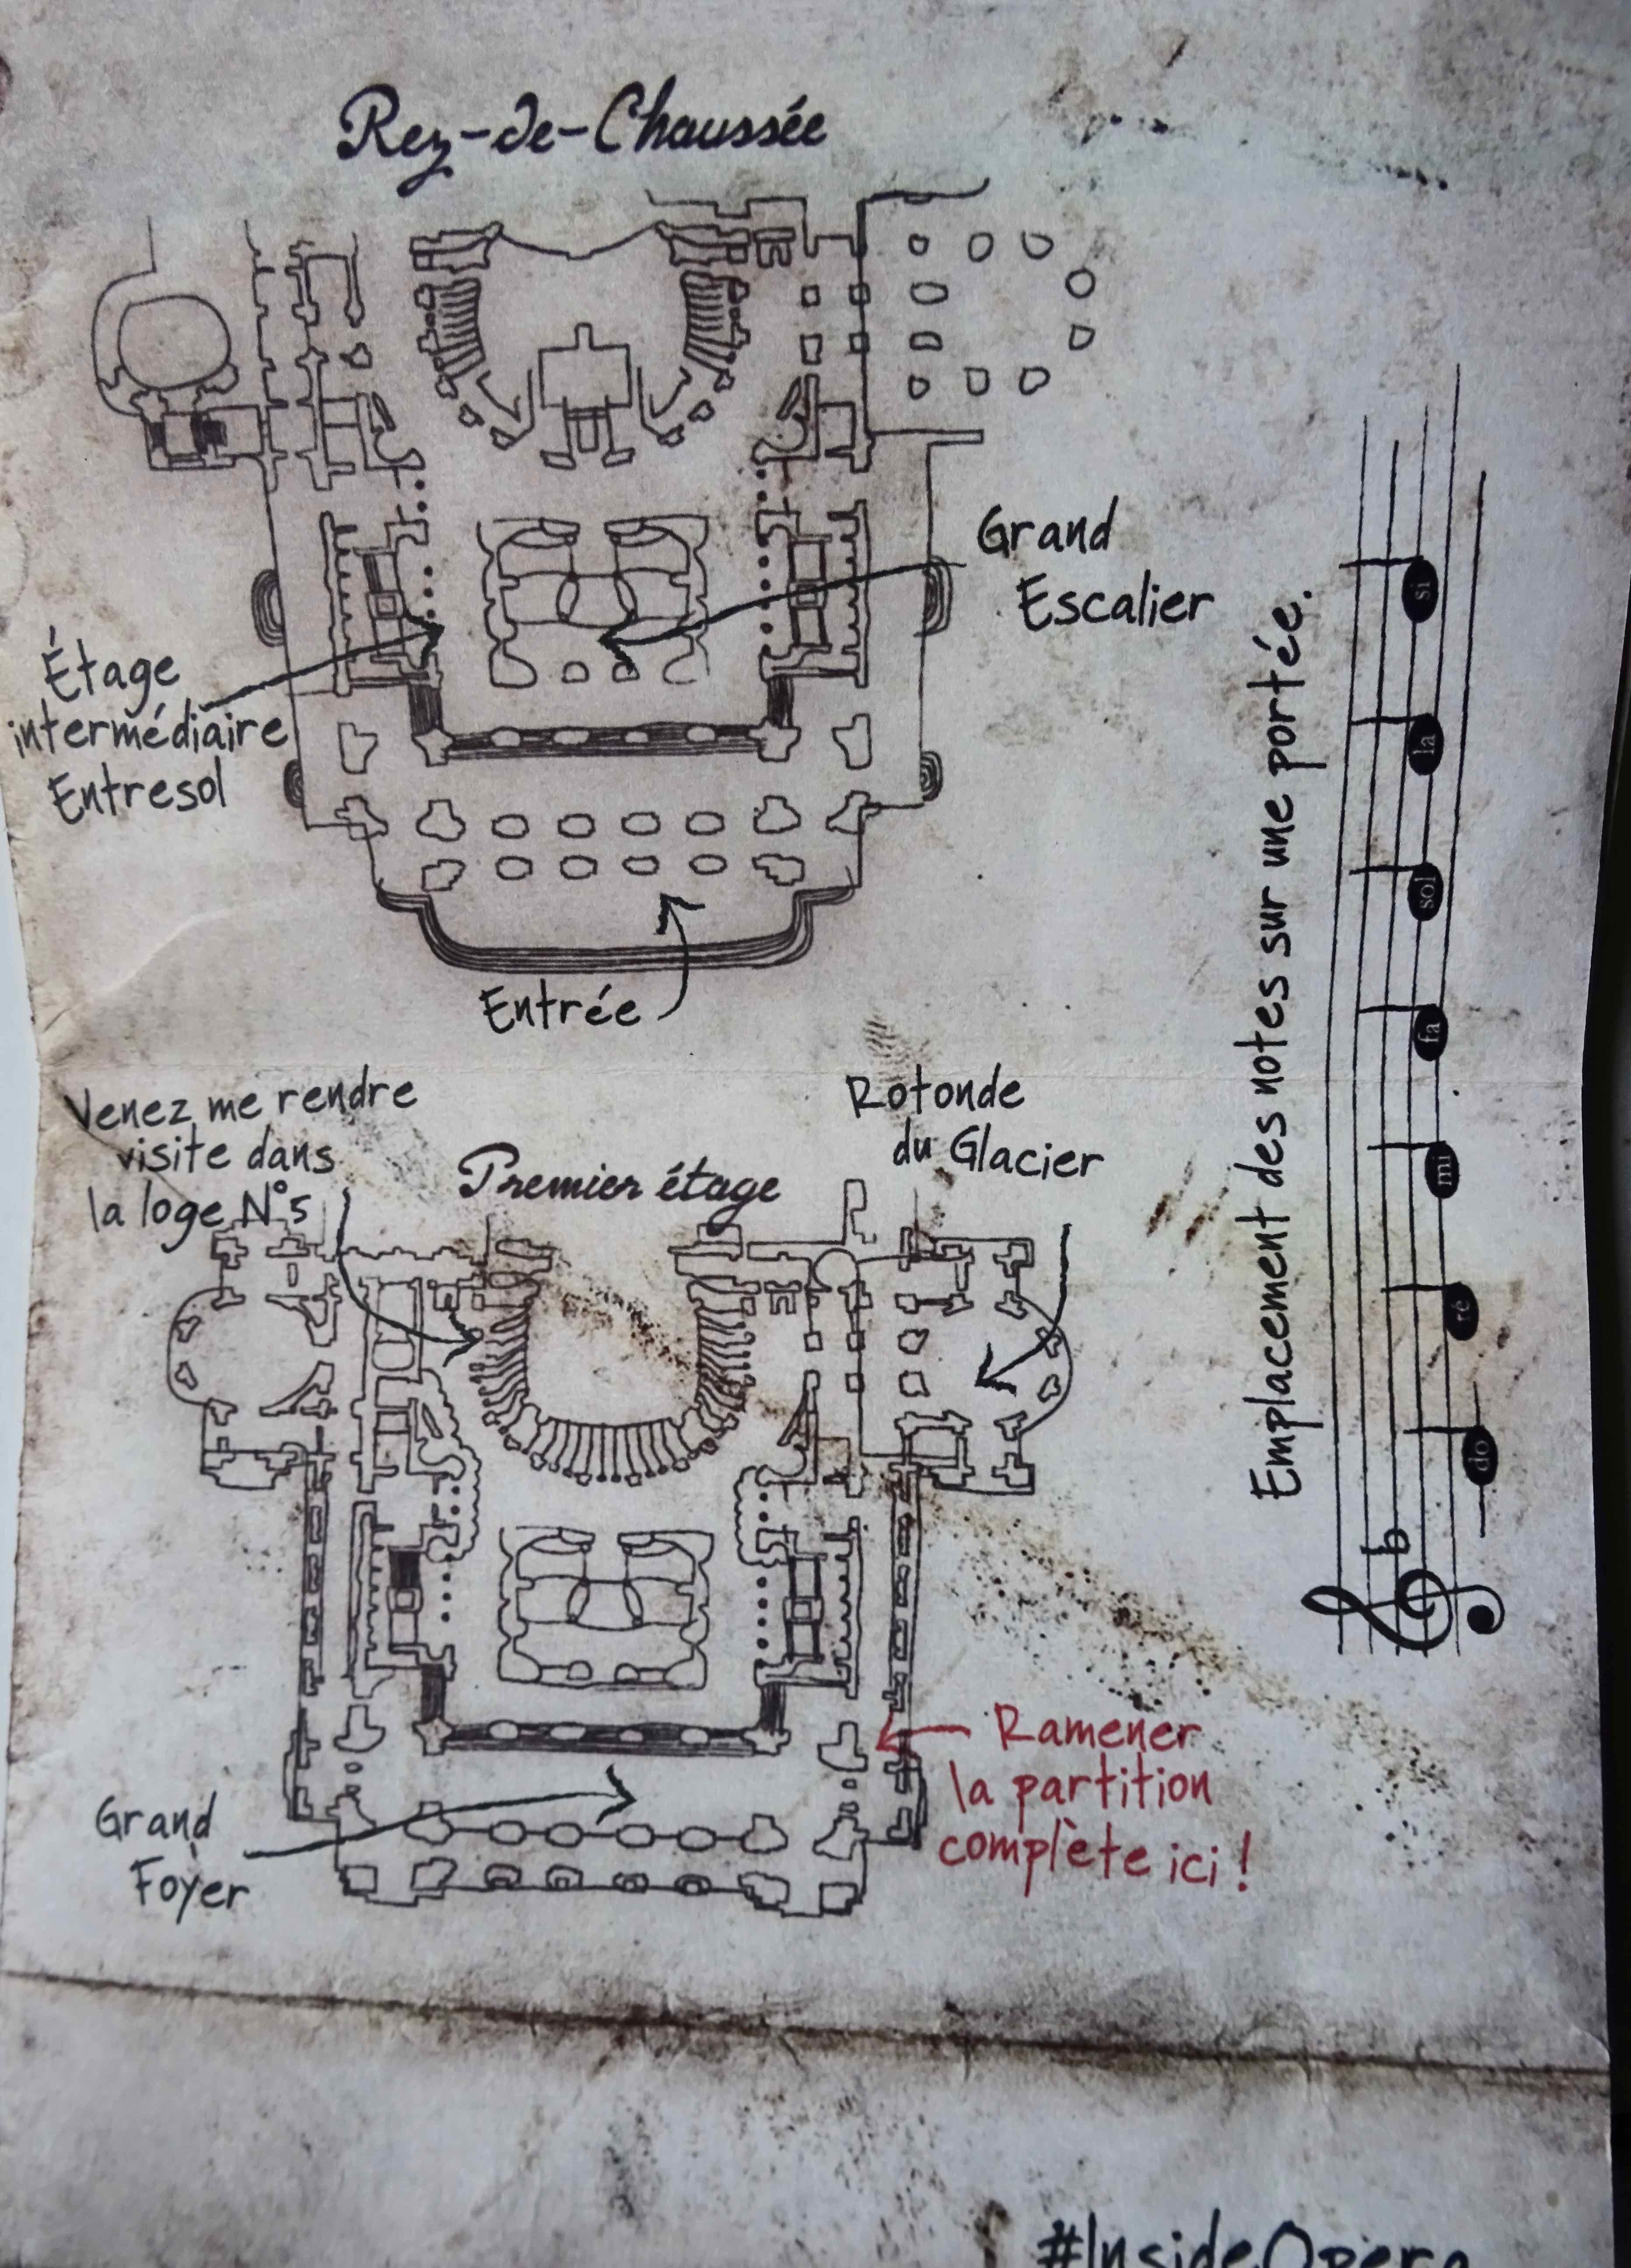 Rez-de-Chaussée
Grand
Escalier
Étage
intermédiaire
Entresol
Entrée
Venez me rendre
visite dans
la loge N°5
Premier étage
Rotonde
du Glacier
Grand
Foyer
Ramener
la partition
complète ici !
Emplacement des notes sur une portée.
do ré mi fa sol la si
#InsideOpera